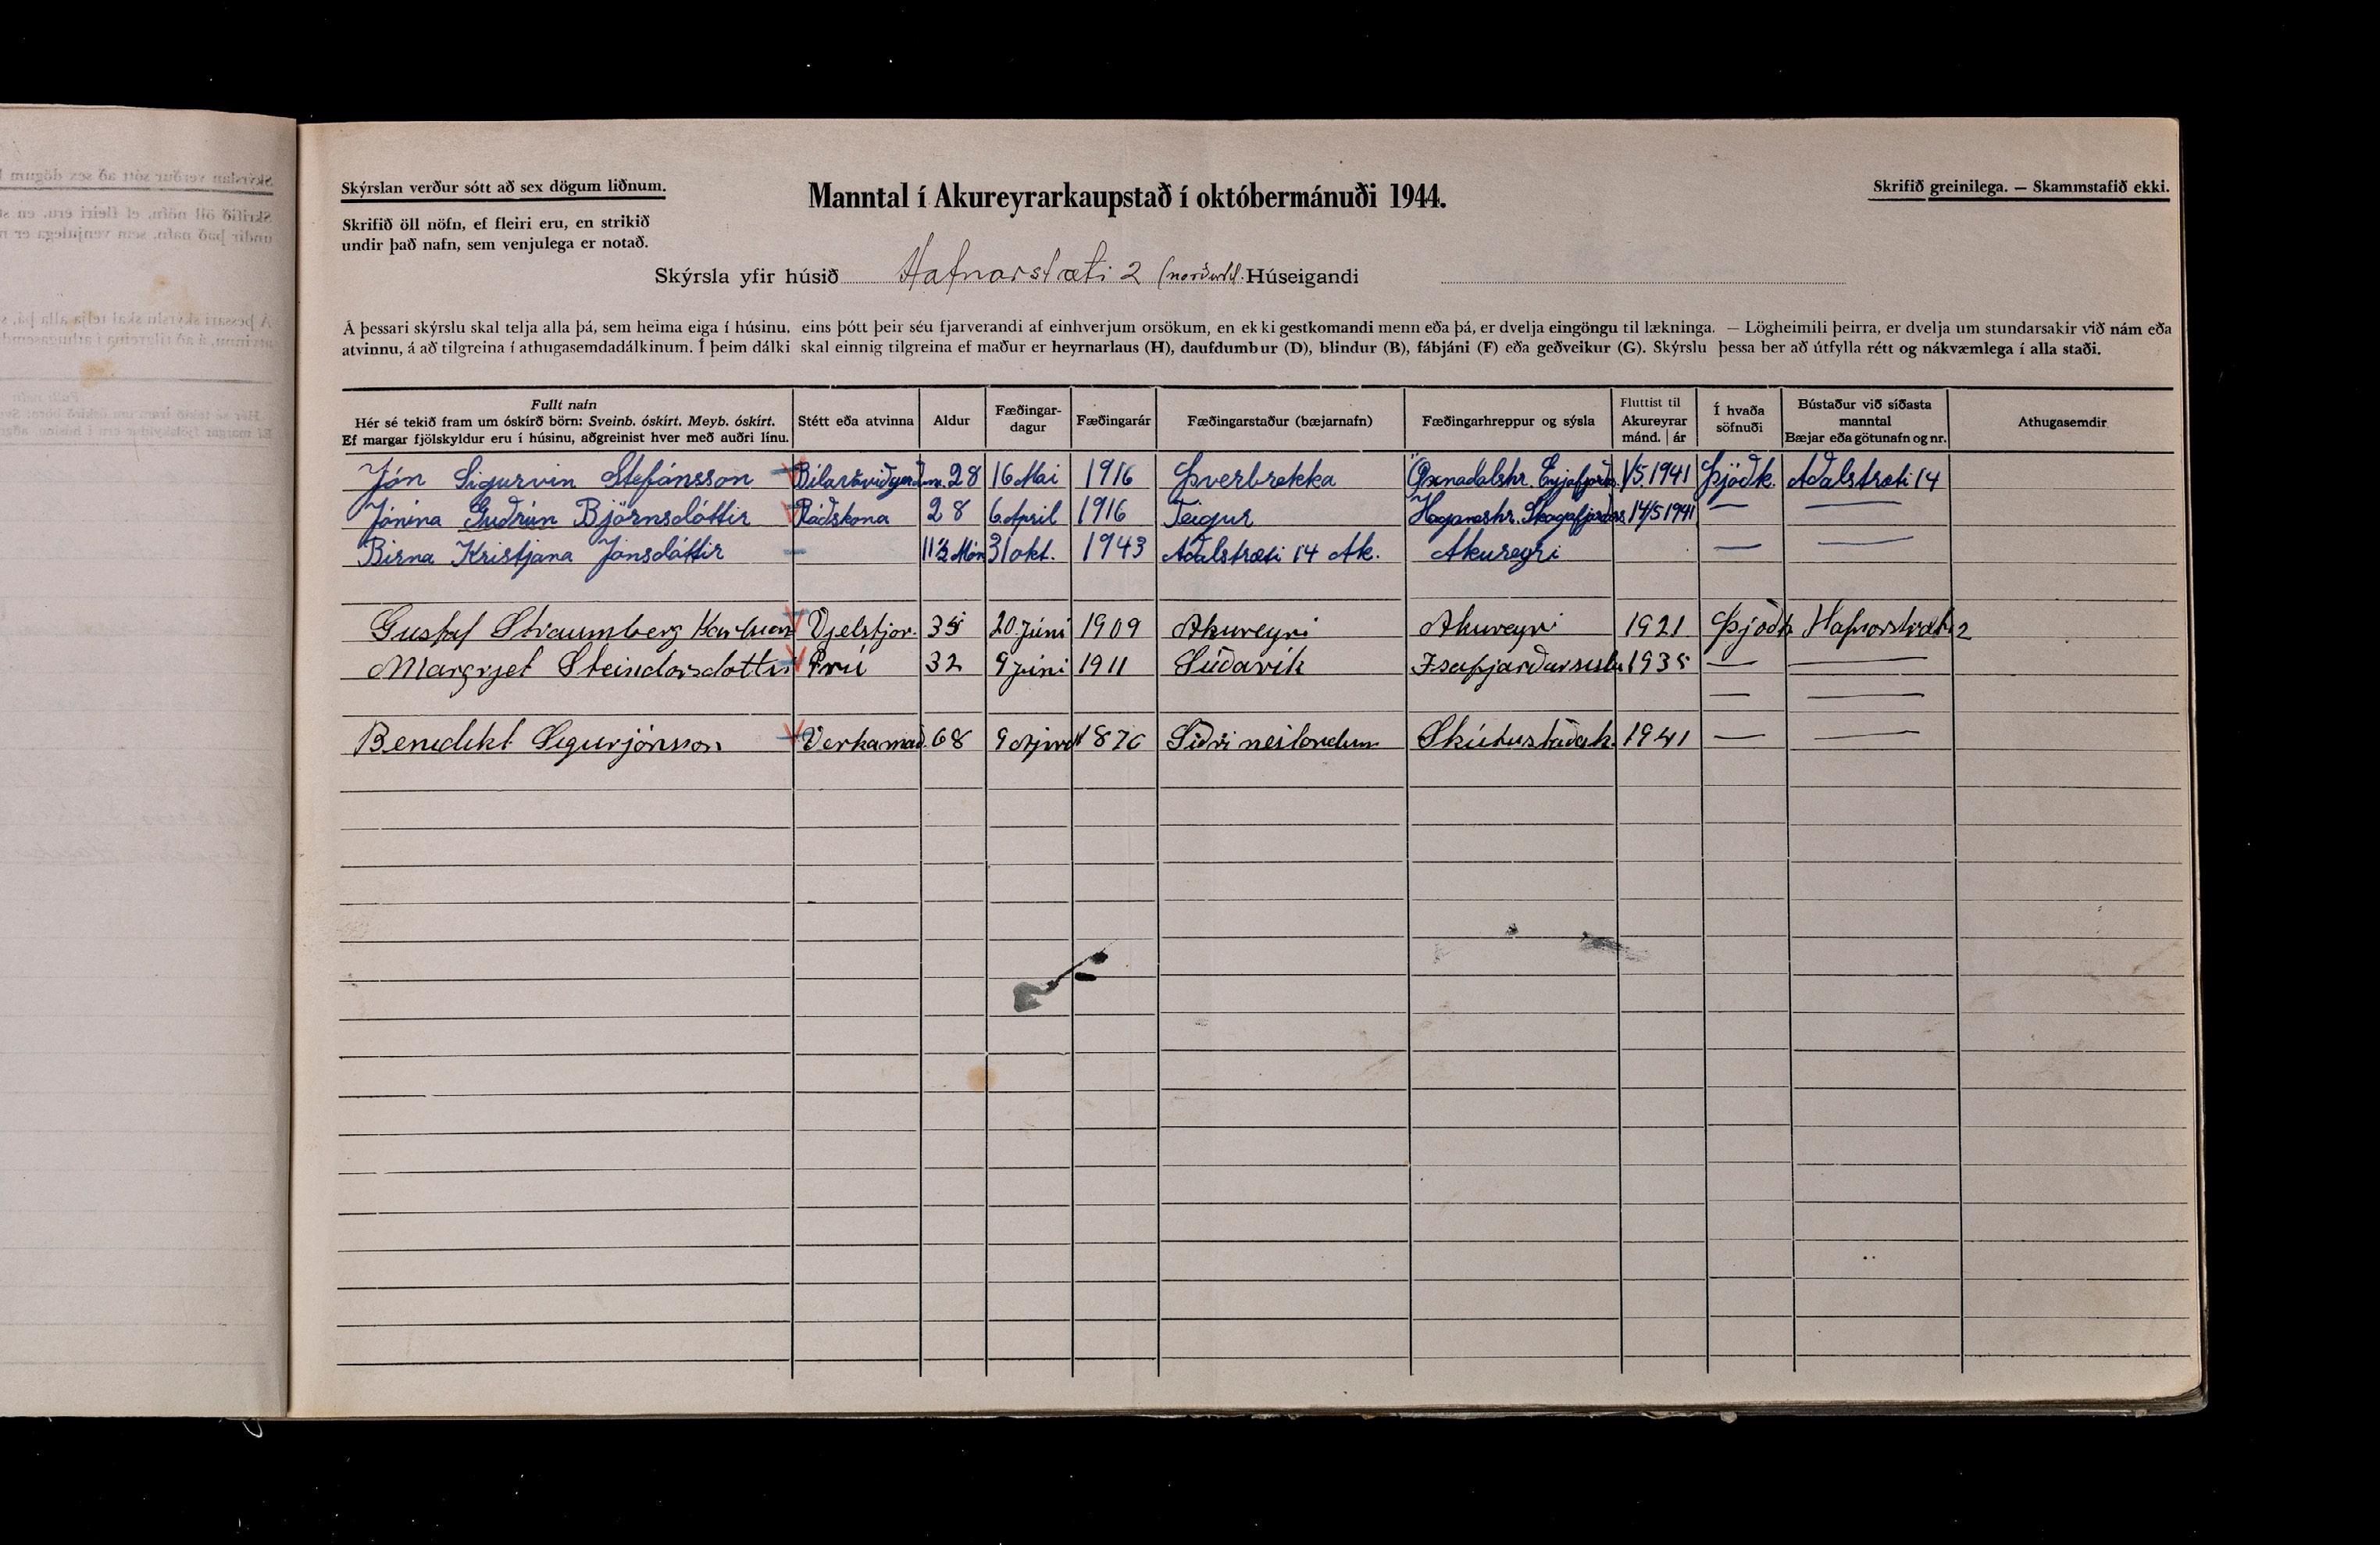 Skýrslan verður sótt að sex dögum liðnum.
Manntal í Akureyrarkaupstað í októbermánuði 1944.
Skrifið greinilega. — Skammstafið ekki.
Skrifið öll nöfn, ef fleiri eru, en strikið
undir það nafn, sem venjulega er notað.
Skýrsla yfir húsið Hafnarstæti 2 Húseigandi
Á þessari skýrslu skal telja alla þá, sem heima eiga í húsinu, eins þótt þeir séu fjarverandi af einhverjum orsökum, en ekki gestkomandi menn eða þá, er dvelja eingöngu til lækninga. — Lögheimili þeirra, er dvelja um stundarsakir við nám eða
atvinnu, á að tilgreina í athugasemdadálkinum. Í þeim dálki skal einnig tilgreina ef maður er heyrnarlaus (H), daufdumbur (D), blindur (B), fábjáni (F) eða geðveikur (G). Skýrslu þessa ber að útfylla rétt og nákvæmlega í alla staði.
Fullt nafn
Hér sé tekið fram um óskírð börn: Sveinb. óskírt. Meyb. óskírt.
Ef margar fjölskyldur eru í húsinu, aðgreinist hver með auðri línu.
Stétt eða atvinna
Aldur
Fæðingar-
dagur
Fæðingarár
Fæðingarstaður (bæjarnafn)
Fæðingarhreppur og sýsla
Fluttist til
Akureyrar
mánd. | ár
Í hvaða
söfnuði
Bústaður við síðasta
manntal
Bæjar eða götunafn og nr.
Athugasemdir
Jón Sigurvin Stefánsson 28 16 Mai 1916 Þverbrekka Öxnadalshr. Eyjafjarðs. 1/5 1941 Þjóðk. Aðalstræti 14
Jónína Guðrún Björnsdóttir Ráðskona 28 6 April 1916 Teigur Haganeshr. Skagafjarðars. 14/5 1941 — —
Birna Kristjana Jónsdóttir 11½ Mán 31 okt. 1943 Aðalstræti 14 Ak. Akureyri — —
Gustaf Straumberg Vjelstjor. 35 20 Júní 1909 Akureyri Akureyri 1921 Þjóðk Hafnarstræti 2
Margrjet Steindorsdottir Frú 32 9 júní 1911 Súðavík Isafjarðarsislu 1935 — —
— —
Benedikt Sigurjónsson Verkamað. 68 9 1876 Skútustaðah. 1941 — —